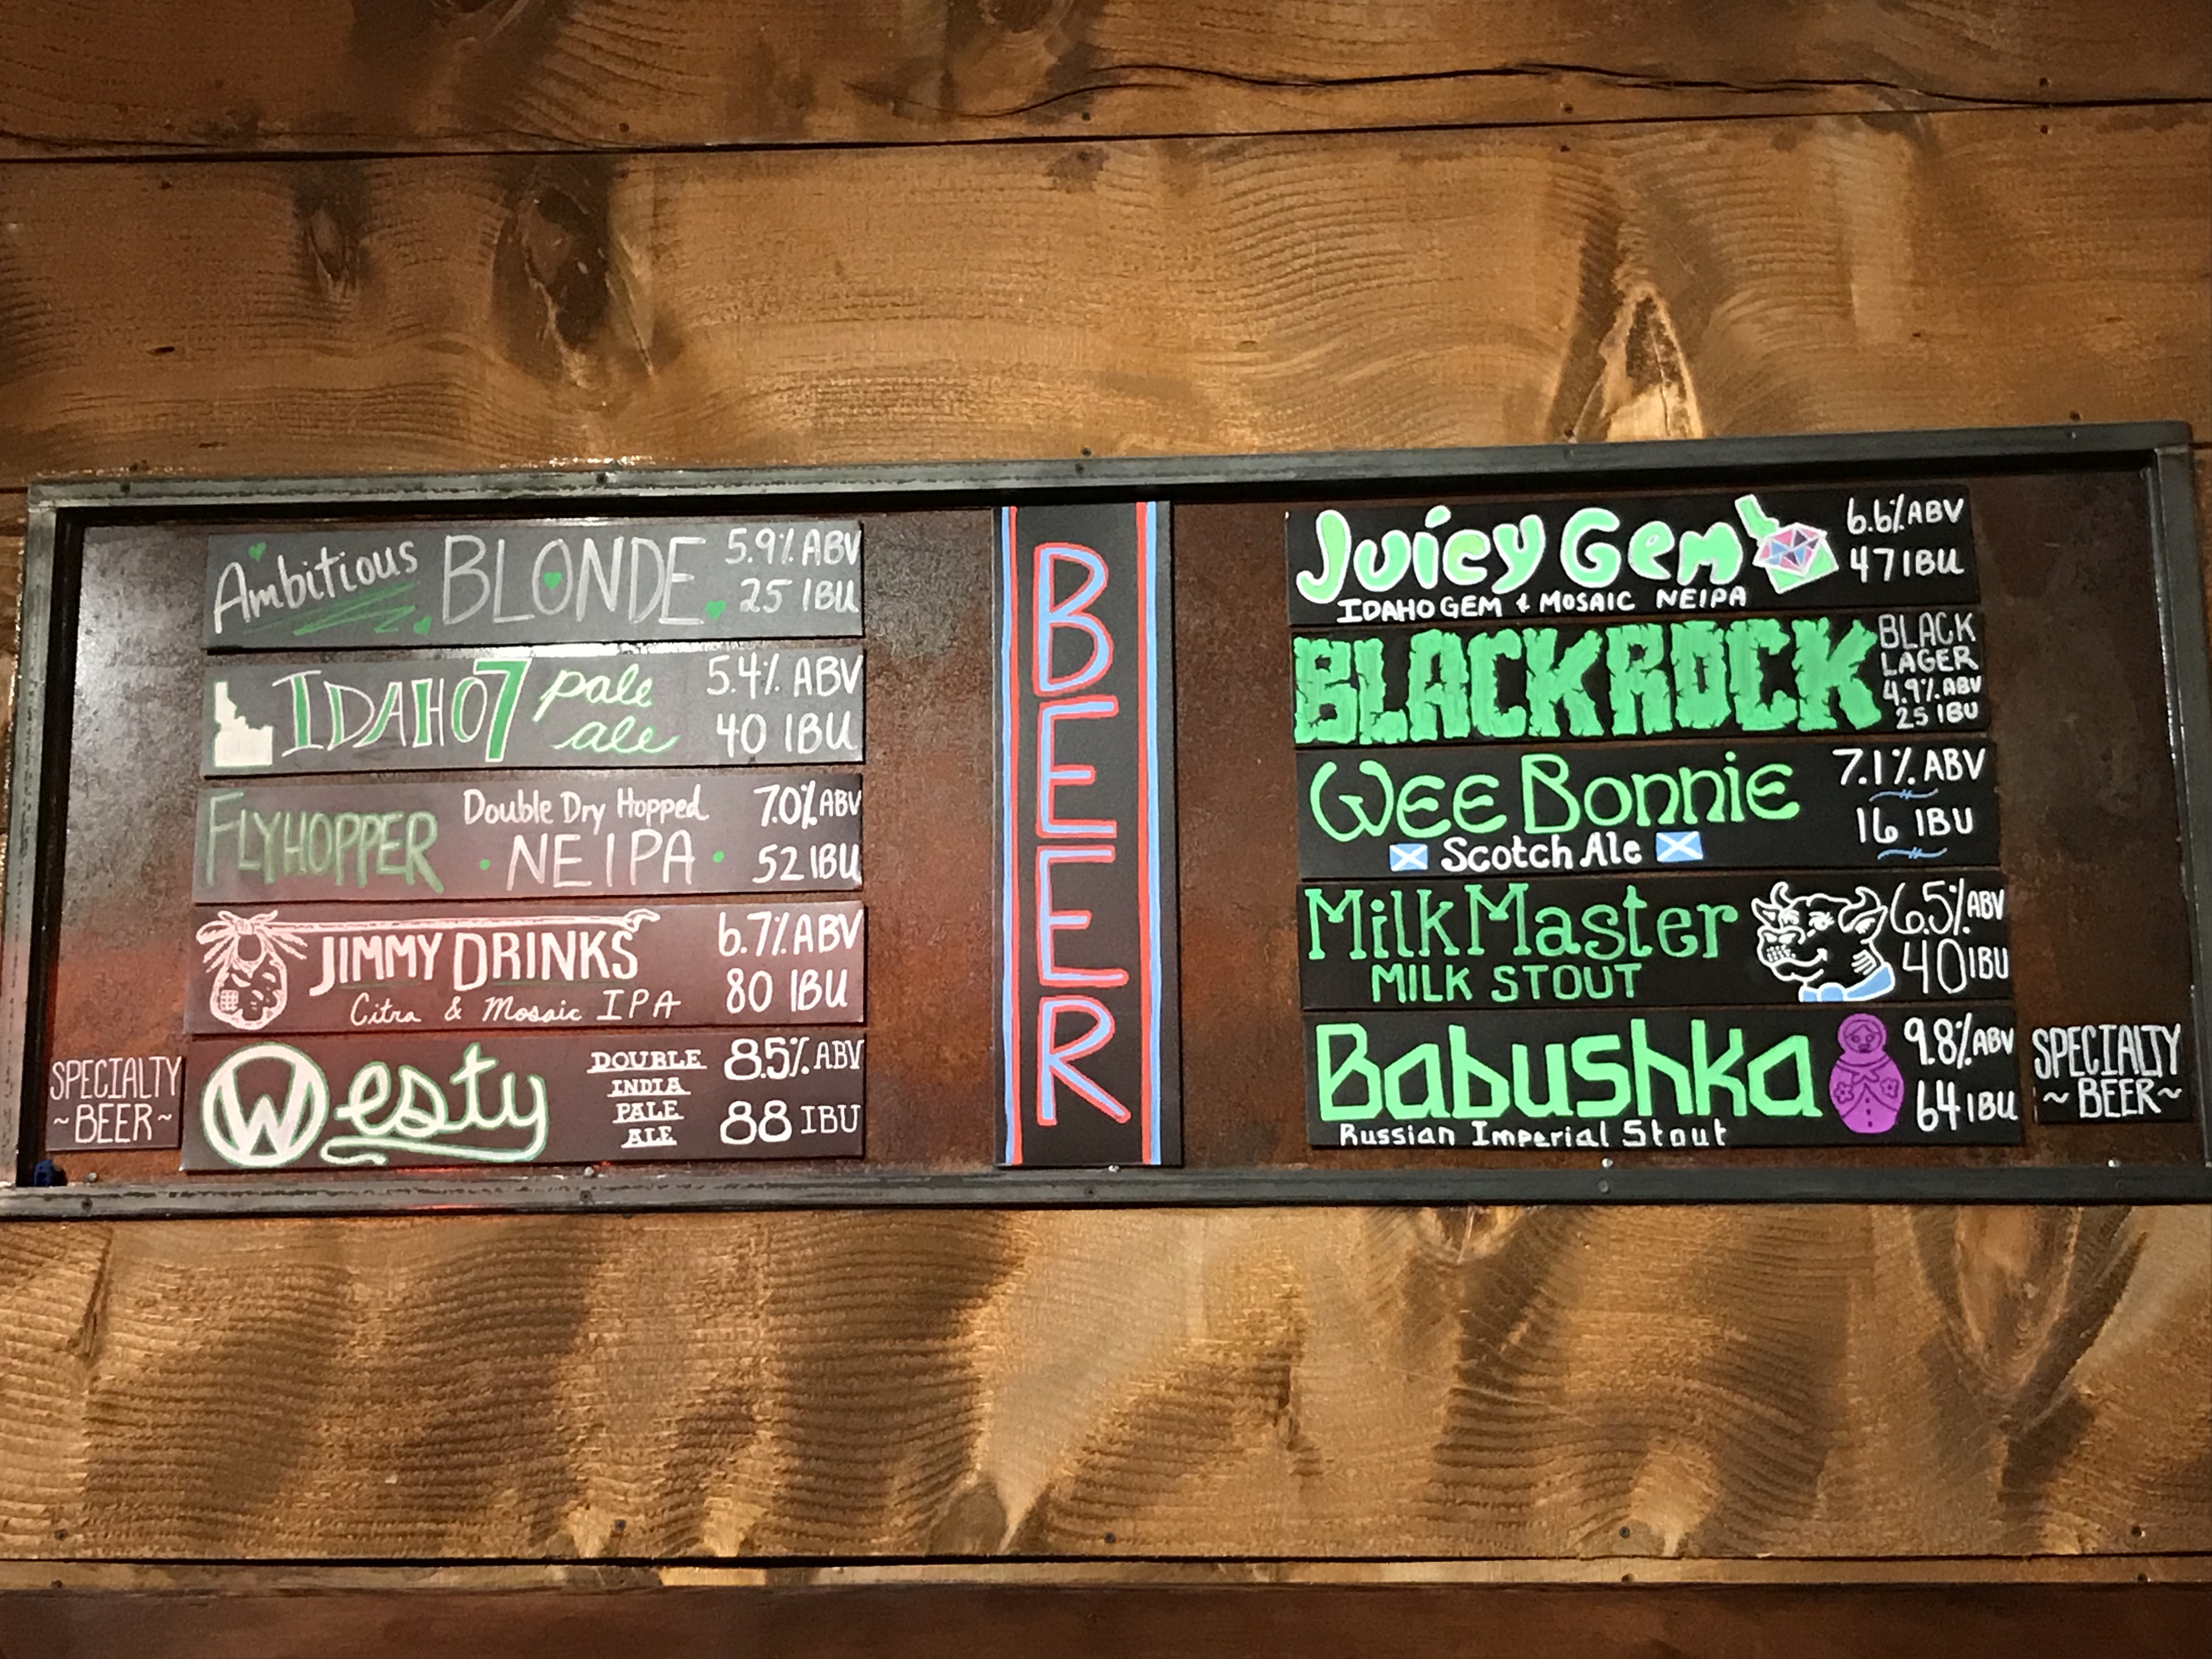 Ambitious BLONDE 5.9% ABV
25 IBU
IDAHO 7 pale ale 5.4% ABV
40 IBU
FLYHOPPER Double Dry Hopped 7.0% ABV
NEIPA 52 IBU
JIMMY DRINKS 6.7% ABV
Citra & Mosaic IPA 80 IBU
SPECIALTY
~BEER~
Westy
DOUBLE
INDIA
PALE
ALE
8.5% ABV
88 IBU
BEER
Juicy Gem 6.6% ABV
47 IBU
IDAHO GEM & MOSAIC NEIPA
BLACKROCK
BLACK
LAGER
4.9% ABV
25 IBU
Wee Bonnie 7.1% ABV
Scotch Ale 16 IBU
MilkMaster 6.5% ABV
MILK STOUT 40 IBU
Babushka 9.8% ABV
64 IBU
Russian Imperial Stout
SPECIALTY
~BEER~